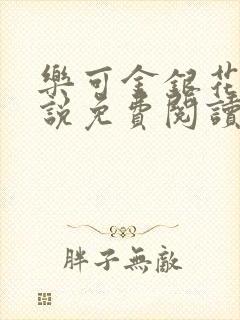 樂可金銀花
說免費閱讀
胖子無敵